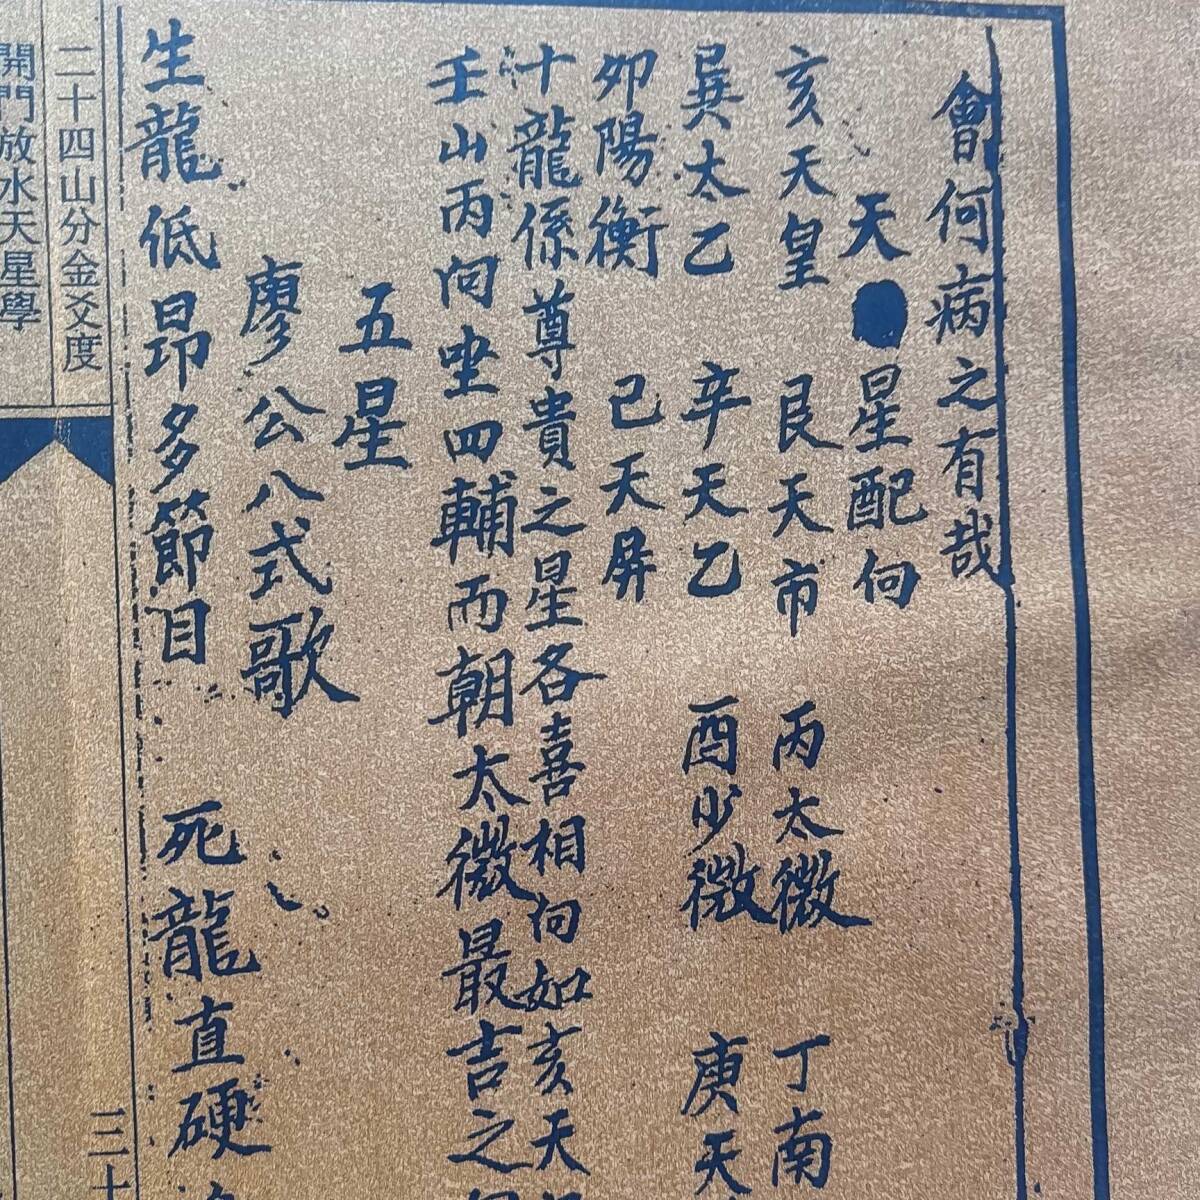 會何病之有哉
天星配向
亥天皇 艮天市 丙太微 丁南
巽太乙 辛天乙 酉少微 庚天
卯陽衡 己天屏
十龍係尊貴之星各喜相向如亥天
壬山丙向坐四輔而朝太微最吉之
五星
廖公八式歌
生龍低昂多節目 死龍直硬
二十四山分金爻度
三十
開門放水天星學